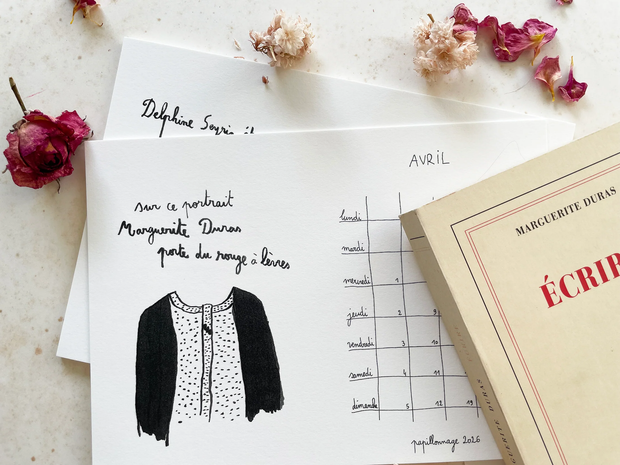 Delphine Seyrig
AVRIL
sur ce portrait
Marguerite Duras
porte du rouge à lèvres
lundi
mardi
mercredi 1
jeudi 2 9
vendredi 3 10
samedi 4 11
dimanche 5 12 19
papillonnage 2026
MARGUERITE DURAS
ÉCRIR